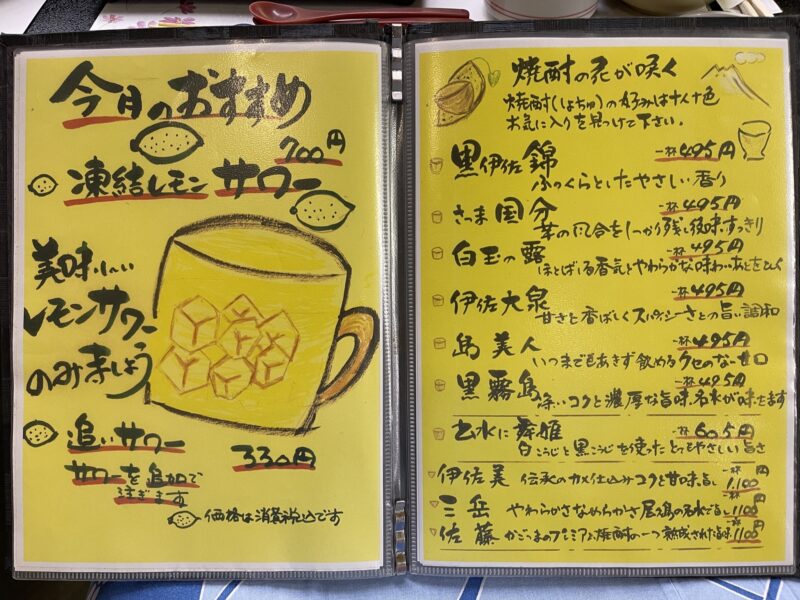 今月のおすすめ
700円
凍結レモンサワー
美味しい
レモンサワー
のみましょう
追いサワー
330円
サワーを追加で
注ぎます
価格は消費税込です
焼酎の花が咲く
焼酎(しょちゅ)の好みは十人十色
お気に入りを見つけて下さい。
黒伊佐錦 一杯495円
ふっくらとしたやさしい香り
さつま国分 一杯495円
芋の風合をしっかり残し後味すっきり
白玉の露 一杯495円
ほとばしる香気とやわらかな味わい
伊佐大泉 一杯495円
甘さと香ばしくスパイシーさとの旨い調和
島美人 一杯495円
いつまでもあきず飲めるクセのない甘口
黒霧島 一杯495円
深いコクと濃厚な旨味、名水が味をます
出水に舞姫 一杯605円
白こうじと黒こうじを使ったとてもやさしい旨さ
伊佐美 伝承のカメ仕込みコクと甘味旨し 一杯1,100円
三岳 やわらかさなめらかさ屋久島の名水で旨し 一杯1100円
佐藤 かごっまのプレミアム焼酎の一つ熟成された旨味 一杯1100円